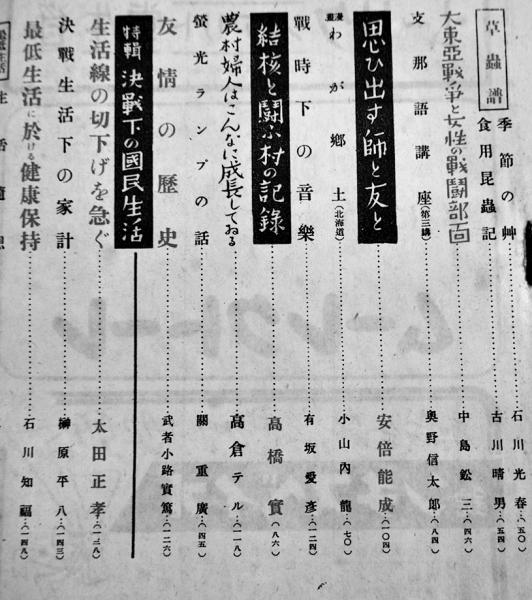 草蟲譜
季節の艸……石川光春…(五〇)
食用昆蟲記……古川晴男…(五四)
大東亞戰爭と女性の戰鬪部面……中島鉱三…(四六)
支那語講座(第三講)……奥野信太郎…(八四)
思ひ出す師と友と……安倍能成…(一〇四)
漫畫わが郷土(北海道)……小山內龍…(七〇)
戰時下の音樂……有坂愛彦…(一二四)
結核と鬪ふ村の記錄……高橋實…(八六)
農村婦人はこんなに成長してゐる……高倉テル…(一一八)
螢光ランプの話……關重廣…(四五)
友情の歷史……武者小路實篤…(一二六)
特輯 決戰下の國民生活
生活線の切下げを急ぐ……太田正孝…(一三八)
決戰生活下の家計……榊原平八…(一四三)
最低生活に於ける健康保持……石川知福…(一四八)
ムーレクトーレ